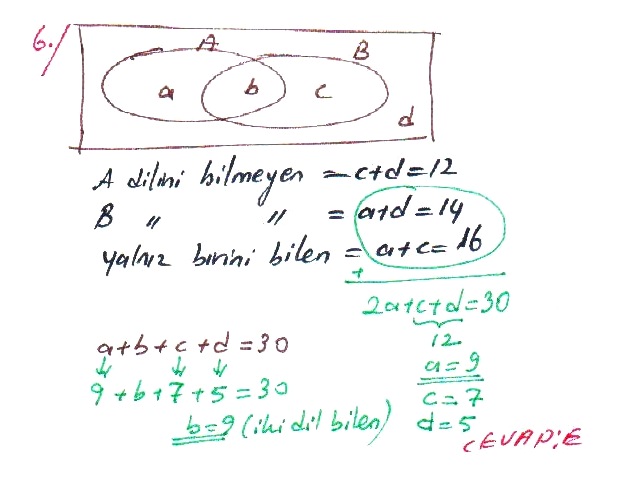 6./
A B
a b c
d
A dilini bilmeyen = c+d=12
B " " = a+d=14
yalnız birini bilen = a+c=16
+
2a+c+d=30
12
a+b+c+d=30
a=9
9+b+7+5=30
c=7
b=9 (iki dil bilen)
d=5
CEVAP:E